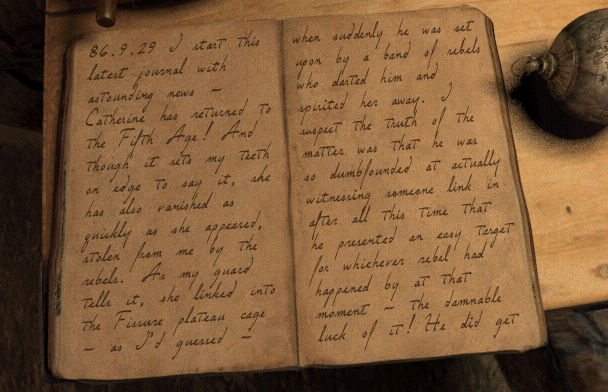 86.9.29 I start this
latest journal with
astounding news —
Catherine has returned to
the Fifth Age! And
though it sets my teeth
on edge to say it, she
has also vanished as
quickly as she appeared,
stolen from me by the
rebels. As my guard
tells it, she linked into
the Fissure plateau cage
— as I'd guessed —
when suddenly he was set
upon by a band of rebels
who darted him and
spirited her away. I
suspect the truth of the
matter was that he was
so dumbfounded at actually
witnessing someone link in
after all this time that
he presented an easy target
for whichever rebel had
happened by at that
moment — the damnable
luck of it! He did get